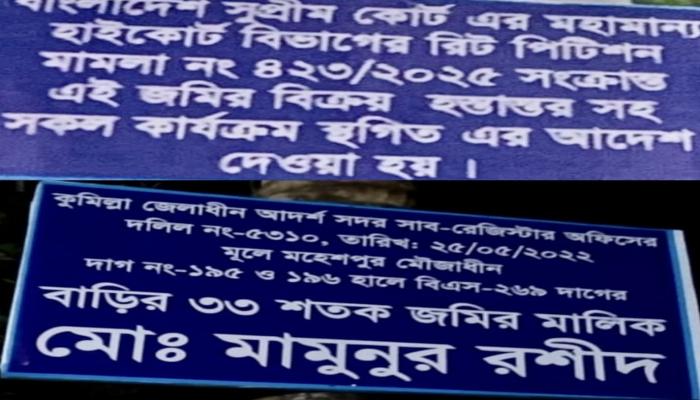 বাংলাদেশ সুপ্রীম কোর্ট এর মহামান্য
হাইকোর্ট বিভাগের রিট পিটিশন
মামলা নং ৪২৩/২০২৫ সংক্রান্ত
এই জমির বিক্রয় হস্তান্তর সহ
সকল কার্যক্রম স্থগিত এর আদেশ
দেওয়া হয় ।
কুমিল্লা জেলাধীন আদর্শ সদর সাব-রেজিস্টার অফিসের
দলিল নং-৫৩১০, তারিখ: ২৫/০৫/২০২২
মূলে মহেশপুর মৌজাধীন
দাগ নং-১৯৫ ও ১৯৬ হালে বিএস-২৬৯ দাগের
বাড়ির ৩৩ শতক জমির মালিক
মোঃ মামুনুর রশীদ